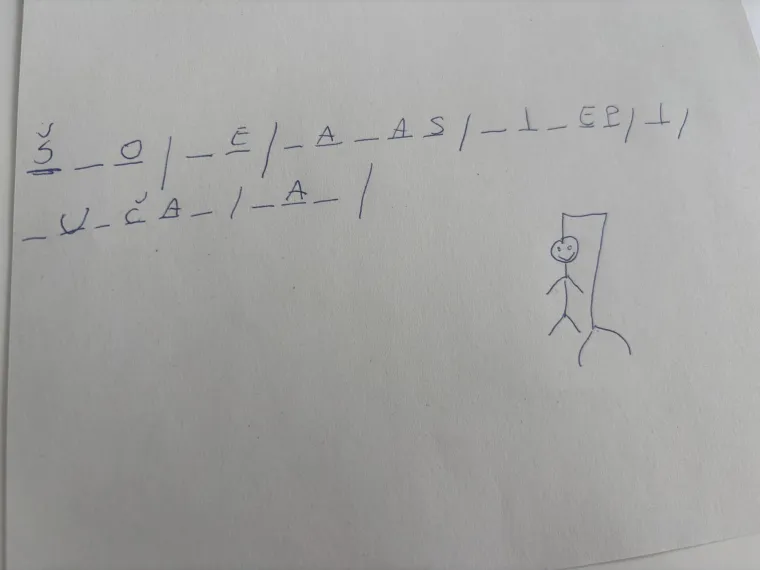 Š _ O / _ E / _ A _ A S / _ I _ E P / I /
_ U _ Č A _ / _ A _ /